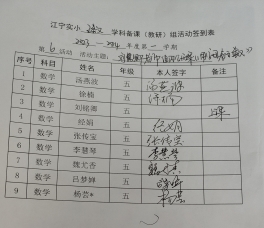 江宁实小 学科备课（教研）组活动签到表
2023—2024 年度第一学期
第 6 活动 活动主题：
序号 科目 姓名 年级 本人签字 备注
1 数学 汤燕波 五 汤燕波
2 数学 徐楠 五 徐楠
3 数学 刘铭卿 五
4 数学 经娟 五 经娟
5 数学 张传宝 五 张传宝
6 数学 李慧琴 五 李慧琴
7 数学 魏尤香 五
8 数学 吕梦婵 五
9 数学 杨芸* 五 杨芸